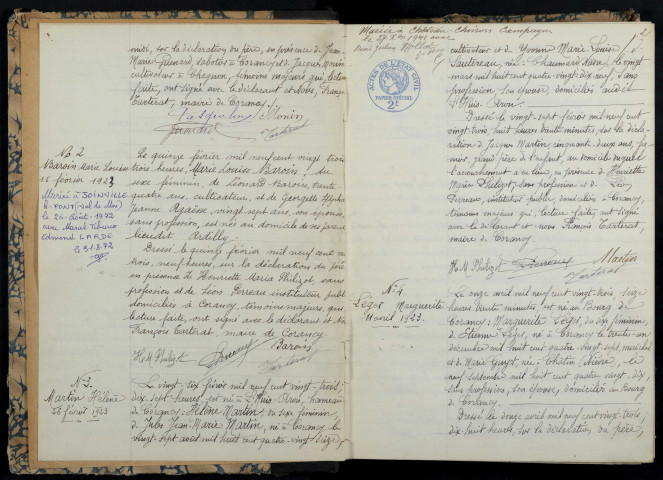 midi, sur la déclaration du père, en présence de Jean
Marie Guenard, sabotier à Corancy et de Jacques
cultivateur à témoins majeurs qui, lecture
faite, ont signé avec le déclarant et Nous, François
Carterat, maire de Corancy.
No 2
Baroin Marie Louise
15 février 1923
Mariée à JOINVILLE
le PONT (Val de Mne)
le 26 Août 1972
avec Marcel Tiburce
Edmond LARDÉ
le 31.8.72
Le quinze février mil neuf cent vingt trois
trois heures, Marie Louise Baroin, du
sexe féminin, de Léonard Baroin, trente
quatre ans, cultivateur, et de Georgette
Jeanne vingt sept ans, son épouse,
sans profession, est née au domicile de ses parents
lieudit Ardilly.
Dressé le quinze février mil neuf cent vingt
trois, neuf heures, sur la déclaration du père
en présence de Henriette Maria Philizot, sans
profession et de Léon Perreau instituteur public
domiciliés à Corancy, témoins majeurs, qui,
lecture faite, ont signé avec le déclarant et Nous
François Carterat, maire de Corancy.
H. M. Philizot
Baroin
Carterat
No 3.
Martin Hélène
26 février 1923
Le vingt six février mil neuf cent vingt-trois
dix sept heures, est née à l'Huis hameau
de Corancy Hélène Martin, du sexe féminin
de Jules Jean-Marie Martin, né à Corancy le
vingt-sept août mil huit cent quatre-vingt
Mariée à Château-Chinon Campagne
le 27 Xbre 1941 avec
2
ACTES DE L'ETAT CIVIL
PAPIER SPÉCIAL
2F
cultivateur et de Yvonne Marie Louise
Sautereau, née à Chaumard Nièvre, le vingt
mars mil huit cent quatre-vingt dix neuf, sans
profession, son épouse, domiciliés audit
l'Huis
Dressé le vingt-sept février mil neuf cent
vingt-trois, huit heures trente minutes, sur la décla-
ration de Jacques Martin, cinquante deux ans,
grand père de l'enfant, au domicile duquel
l'accouchement a eu lieu, en présence de Henriette
Maria Philizot, sans profession et de Léon
Perreau, instituteur public, domiciliés à Corancy,
témoins majeurs qui, lecture faite, ont signé
avec le déclarant et nous François Carterat,
maire de Corancy.
H. M. Philizot
Martin
Carterat
No 4
Légot Marguerite
11 avril 1923.
Le onze avril mil neuf cent vingt-trois, seize
heures trente minutes, est née au Bourg de
Corancy : Marguerite Légot, du sexe féminin
de Etienne Légot, né à Corancy le trente-un
décembre mil huit cent quatre vingt sept, maréchal
et de Marie Guyot, née à Châtin (Nièvre), le
neuf septembre mil huit cent quatre vingt dix,
sans profession, son épouse, domiciliés au Bourg
de Corancy.
Dressé le douze avril mil neuf cent vingt-trois,
dix huit heures, sur la déclaration du père,